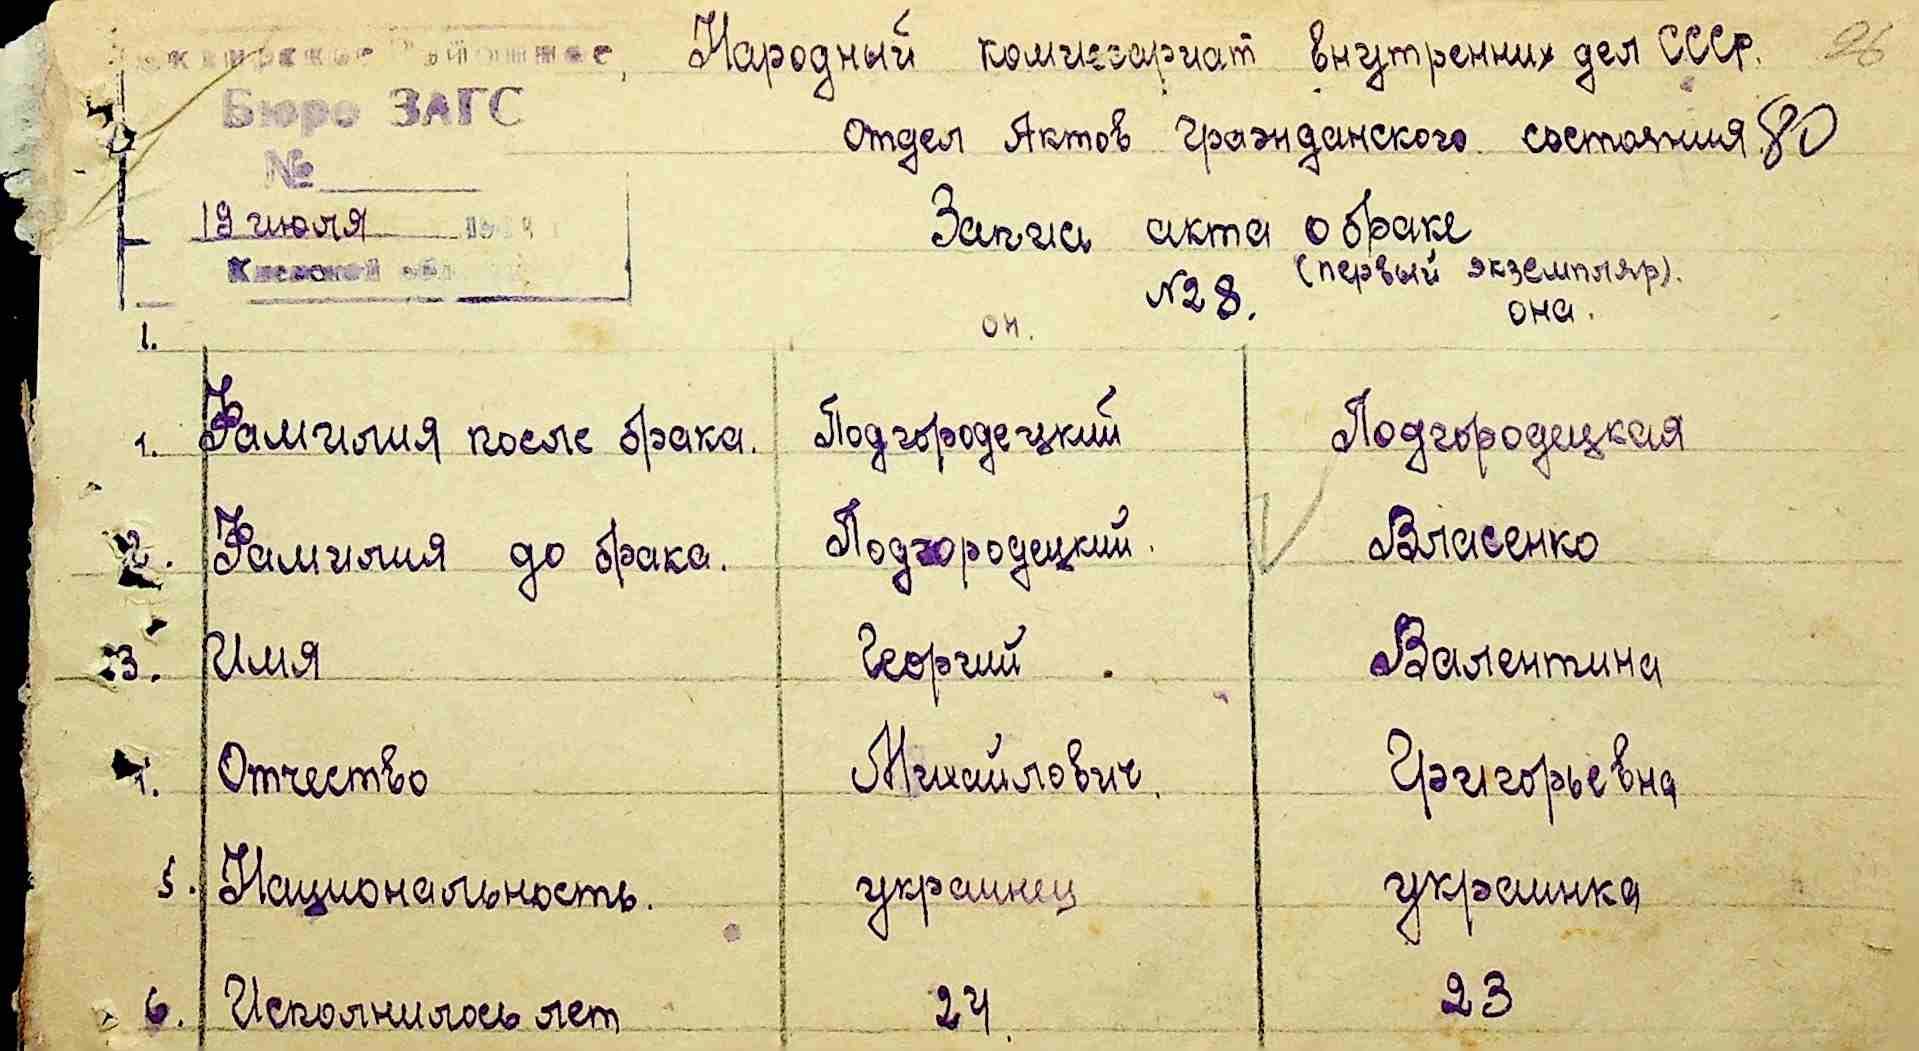 Народный комиссариат внутренних дел СССР. 26
Бюро ЗАГС
отдел Актов гражданского состояния. 80
№
19 июля
Запись акта о браке
Киевской обл
(первый экземпляр).
№28.
он. она.
1.
1. Фамилия после брака. Подгородецкий Подгородецкая
2. Фамилия до брака. Подгородецкий. Власенко
3. Имя Георгий Валентина
Отчество Михайлович. Григорьевна
5. Национальность. украинец украинка
6. Исполнилось лет 24. 23